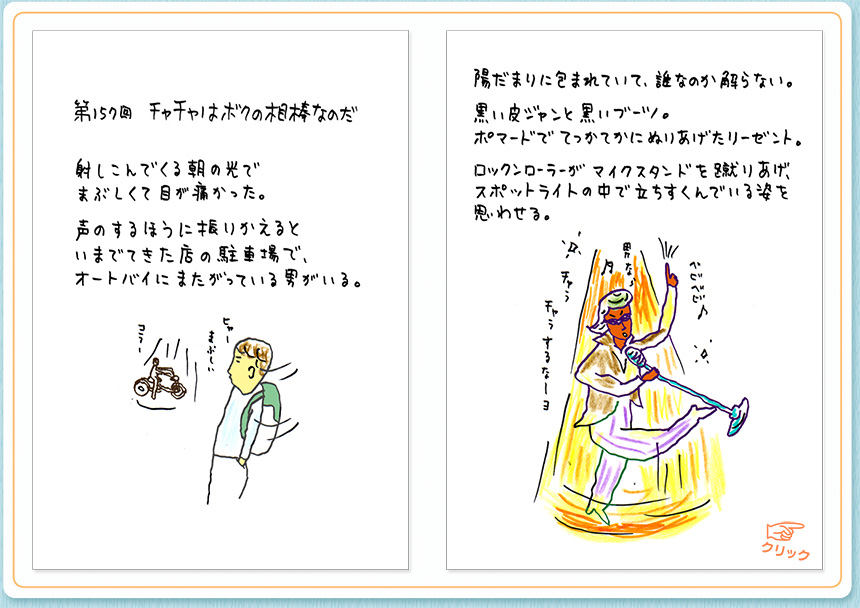 第157回 チャチャはボクの相棒なのだ
射しこんでくる朝の光で
まぶしくて目が痛かった。
声のするほうに振りかえると
いまでてきた店の駐車場で、
オートバイにまたがっている男がいる。
コラー
ヒャー
まぶしい
陽だまりに包まれていて、誰なのか解らない。
黒い皮ジャンと黒いブーツ。
ポマードでてっかてかにぬりあげたリーゼント。
ロックンローラーがマイクスタンドを蹴りあげ、
スポットライトの中で立ちすくんでいる姿を
思わせる。
男なら
チャラ
チャラするなーヨ
ベジベジ♪
クリック